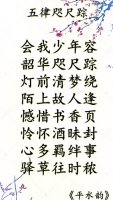 五律咫尺踪
会我少年容
韶华咫尺踪
灯前清梦绕
陌上故人逢
憾惜书香页
怜怀酒醉封
心多羁绊事
驿草往时秾
《平水韵》